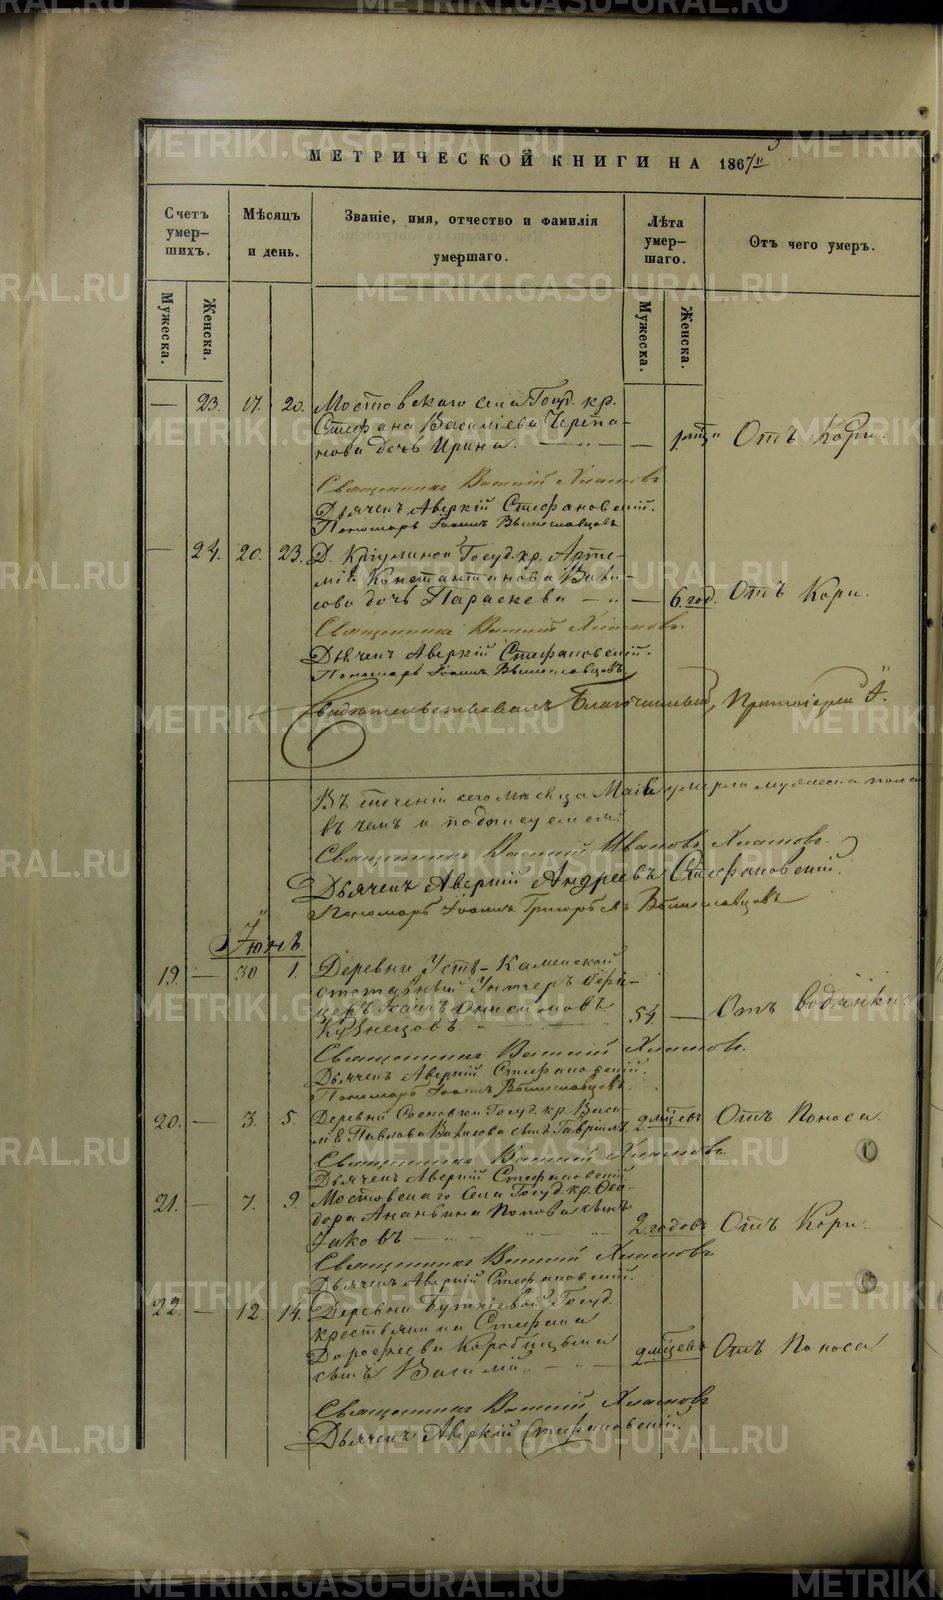 МЕТРИЧЕСКОЙ КНИГИ НА 1867
Счетъ умер-шихъ.
Мѣсяцъ и день.
Званіе, имя, отчество и фамилія умершаго.
Лѣта умер-шаго.
Отъ чего умеръ.
Мужеска.
Женска.
Мужеска.
Женска.
— 23. 17. 20. Мостовскаго села Госуд. кр.
Стефана Василіева Черепа-
нова дочь Ирина. — Отъ Кори.
Священникъ Василій Хламовъ
Дьячекъ Аверкій Стефановскій.
Пономарь Іоаннъ Вышеславцовъ
— 24. 20. 23. Д. Госуд. кр. Арте-
мія Константинова
дочь Параскева — 6. год. Отъ Кори.
Священникъ Василій Хламовъ.
Дьячекъ Аверкій Стефановскій.
Пономарь Іоаннъ Вышеславцовъ
Свидѣтельствовалъ Благочинный, Протоіерей
Въ теченіи сего мѣсяца Маія умерло мужеска пола
въ чемъ и подписуемся:
Священникъ Василій Ивановъ Хламовъ.
Дьячекъ Аверкій Андреевъ Стефановскій.
Пономарь Іоаннъ Григорьевъ Вышеславцовъ
Іюнь.
19. — 30 1. Деревни Усть-Каменской
отставный Унтеръ Офи-
церъ Іоаннъ Онисимовъ
Кузнецовъ. 54. — Отъ водянки
Священникъ Василій Хламовъ.
Дьячекъ Аверкій Стефановскій.
Пономарь Іоаннъ Вышеславцовъ.
20. — 3. 5. Деревни Сосновки Госуд. кр. Васи-
лія Павлова сынъ Гавріилъ 2 мѣсцевъ Отъ Поноса.
Священникъ Василій Хламовъ
Дьячекъ Аверкій Стефановскій
21. — 7. 9. Мостовскаго Села Госуд. кр. Ѳео-
дора Ананьина Попова сынъ
Іаковъ — 2. годовъ Отъ Кори.
Священникъ Василій Хламовъ
Дьячекъ Аверкій Стефановскій.
22. — 12. 14. Деревни Госуд.
крестьянина Стефана
Дорофеева Коробицына
сынъ Василій. — мѣсцевъ Отъ Поноса
Священникъ Василій Хламовъ
Дьячекъ Аверкій Стефановскій.
METRIKI.GASO-URAL.RU